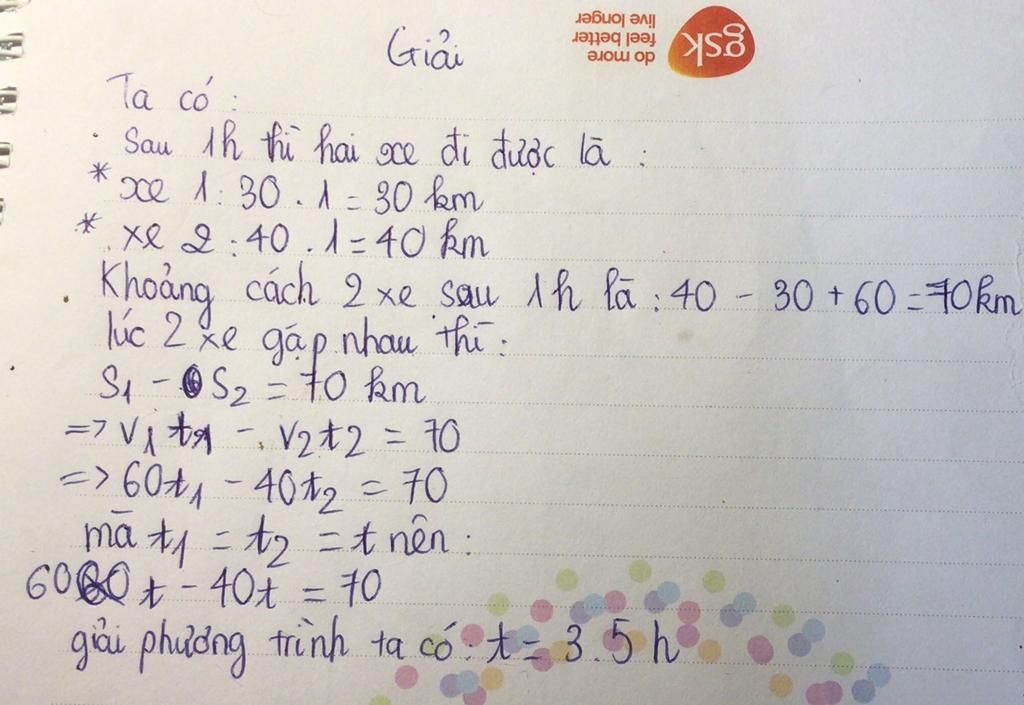 gsk
do more
feel better
live longer
Giải
Ta có :
Sau 1h thì hai xe đi được là :
* xe 1 : 30 . 1 = 30 km
* xe 2 : 40 . 1 = 40 km
Khoảng cách 2 xe sau 1h là : 40 - 30 + 60 = 70 km
lúc 2 xe gặp nhau thì :
S₁ - S₂ = 70 km
=> V₁t₁ - V₂t₂ = 70
=> 60t₁ - 40t₂ = 70
mà t₁ = t₂ = t nên :
60t - 40t = 70
giải phương trình ta có : t = 3.5 h